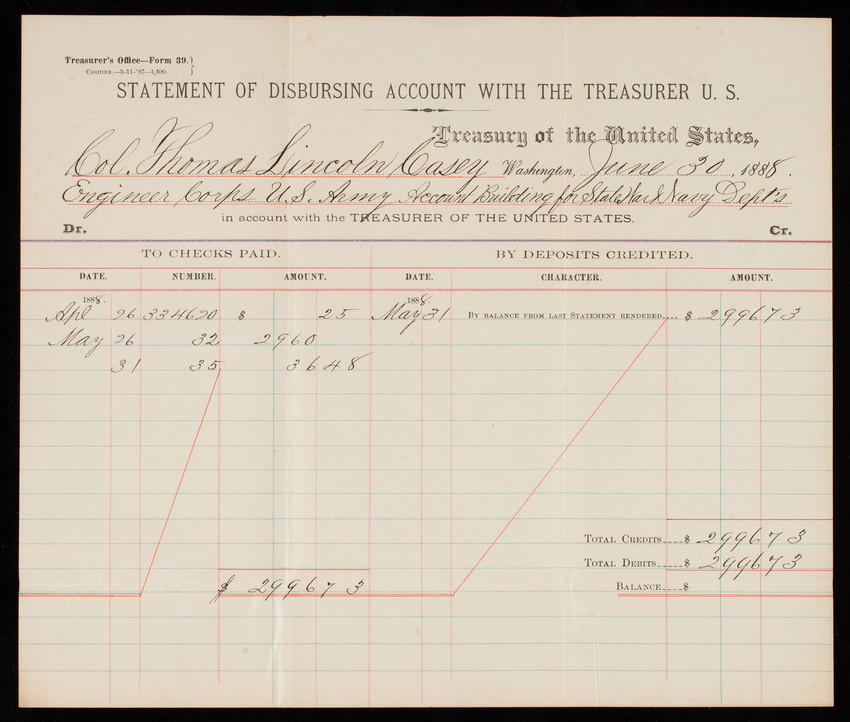 Treasurer's Office—Form 39.}
Cashier.—3-11-'87—1,500.
STATEMENT OF DISBURSING ACCOUNT WITH THE TREASURER U. S.
Treasury of the United States,
Col. Thomas Lincoln Casey Washington, June 30, 1888.
Engineer Corps U.S. Army Account Building for State War & Navy Dep'ts
in account with the TREASURER OF THE UNITED STATES.
Dr. Cr.
TO CHECKS PAID. BY DEPOSITS CREDITED.
DATE. NUMBER. AMOUNT. DATE. CHARACTER. AMOUNT.
1888. 1888.
Apl 26 334620 $ 25 May 31 By balance from last Statement rendered.... $ 2996 73
May 26 32 2960
31 35 36 48
Total Credits....$ 2996 73
Total Debits....$ 2996 73
$ 2996 73 Balance....$